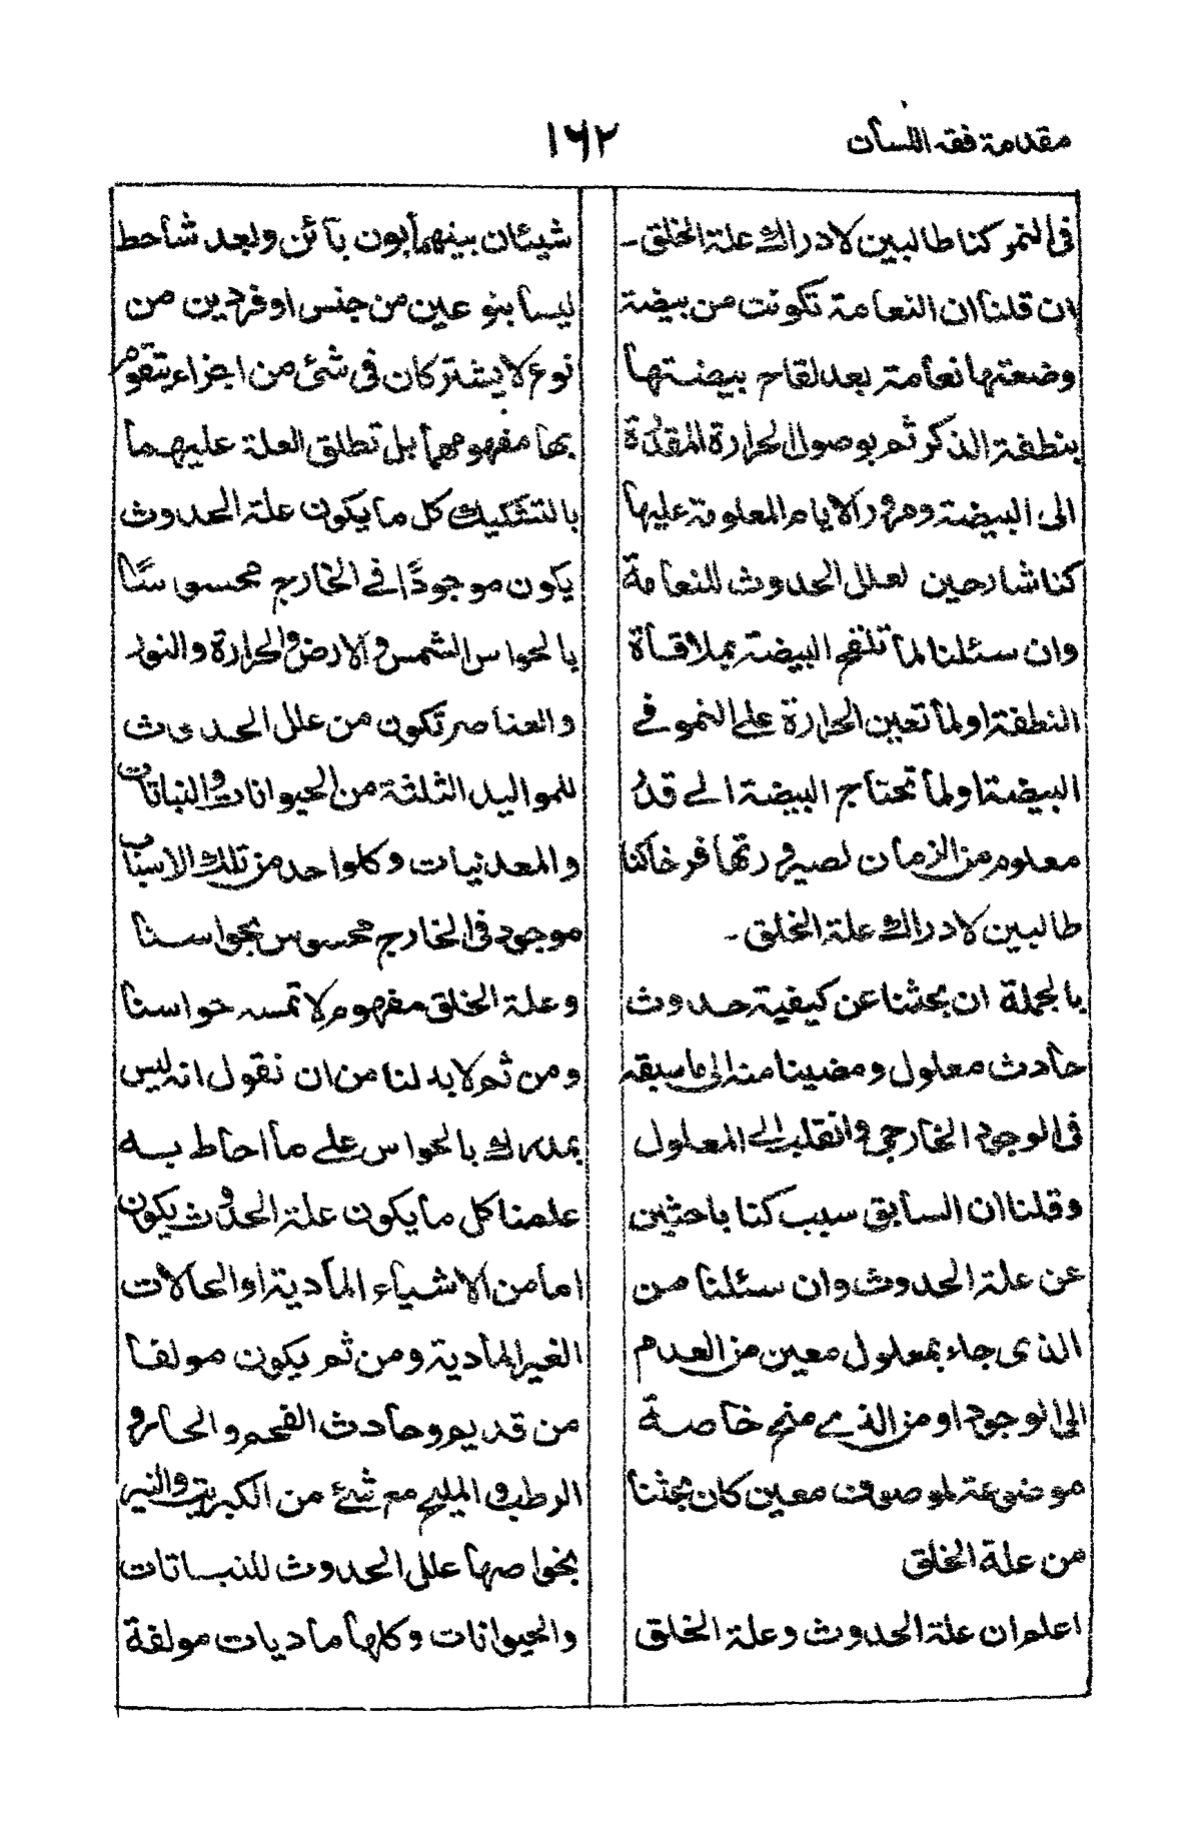 مقدمة فقه اللسان
١٦٢
فى النمو كنا طالبين لادراك علة الخلق ـ
ان قلنا ان النعامة تكونت من بيضة
وضعتها نعامة بعد لقاح بيضتها
بنطفة الذكر ثم بوصول الحرارة المقدّرة
الى البيضة ومرور الايام المعلومة عليها
كنا شارحين لعلل الحدوث للنعامة
وان سئلنا لما تلقح البيضة بملاقاة
النطفة او لما تعين الحرارة على النمو فى
البيضة او لما تحتاج البيضة الى قدر
معلوم من الزمان لصيرورتها فرخا كنا
طالبين لادراك علة الخلق ـ
بالجملة ان بحثنا عن كيفية حدوث
حادث معلول ومضينا منه الى ما سبقه
فى الوجود الخارجى وانقلب الى المعلول
وقلنا ان السابق سبب كنا باحثين
عن علة الحدوث وان سئلنا من
الذى جاء بمعلول معين من العدم
الى الوجود او من الذى منح خاصة
موضوعة لموصوف معين كان بحثنا
من علة الخلق
اعلم ان علة الحدوث وعلة الخلق
شيئان بينهما بون بائن وبعد شاحط
ليسا بنوعين من جنس او فردين من
نوع لا يشتركان فى شئ من اجزاء يتقوم
بها مفهومهما بل تطلق العلة عليهما
بالتشكيك كل ما يكون علة الحدوث
يكون موجودًا فى الخارج محسوسًا
بالحواس الشمس والارض والحرارة والنور
والعناصر تكون من علل الحدوث
للمواليد الثلثة من الحيوانات والنباتات
والمعدنيات وكل واحد من تلك الاسباب
موجود فى الخارج محسوس بحواسنا
وعلة الخلق مفهوم لا تمسه حواسنا
ومن ثم لا بد لنا من ان نقول انه ليس
بمدرك بالحواس على ما احاط به
علمنا كل ما يكون علة الحدوث يكون
اما من الاشياء المادية او الحالات
الغير المادية ومن ثم يكون مولفا
من قديم وحادث الفحم والحار و
الرطب والمليح مع شئ من الكبريت والنير
بخواصها علل الحدوث للنباتات
والحيوانات وكلها ماديات مولفة